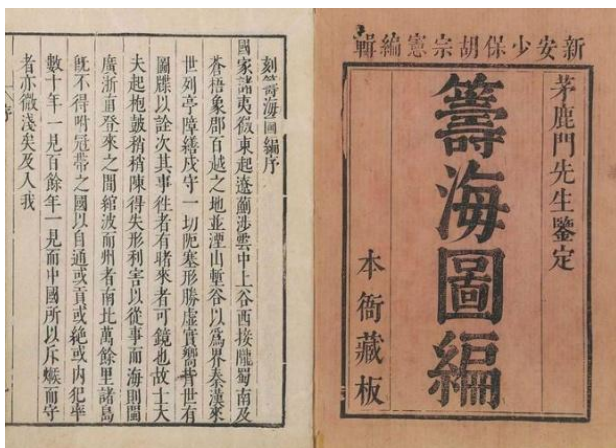 新安少保胡宗憲編輯
茅鹿門先生鑒定
籌海圖編
本衙藏板
刻籌海圖編序
國家諸夷徼東起遼薊涉雲中上谷西接隴蜀南及
蒼梧象郡百越之地並湮山塹谷以為界秦漢來
世列亭障繕戍守一切阨塞形勝虛實嚮背世有
圖牒以詮次其事徃者有睹來者可鏡也故士大
夫起枹鼓稍稍陳得失形利害以從事而海則閩
廣浙直登來之間綰波而州者南北萬餘里諸島
旣不得咐冠帶之國以自通或貢或絶或内犯率
數十年一見百餘年一見而中國所以斥堠而守
者亦微淺矣及入我
序